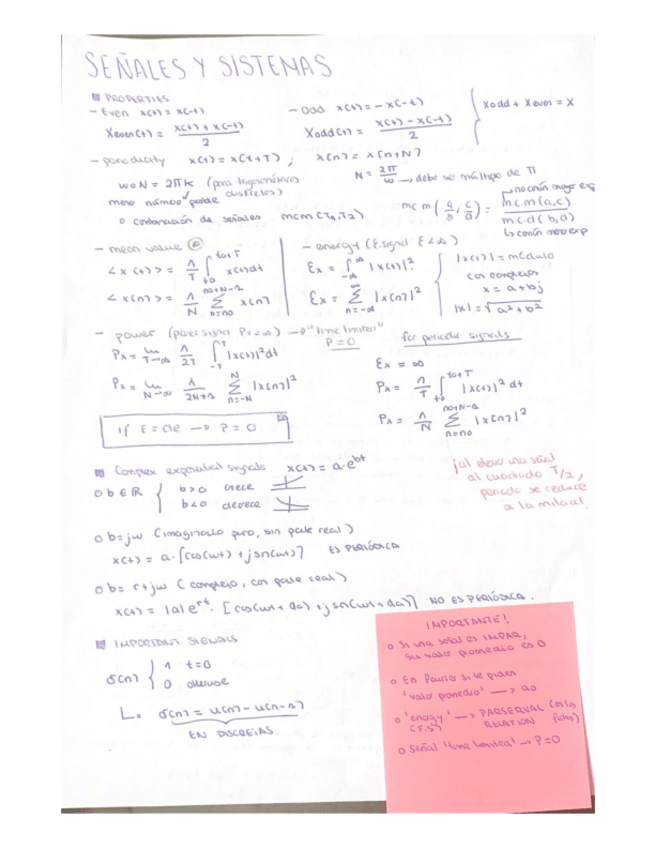 SEÑALES Y SISTEMAS
PROPERTIES
- Even x(t) = x(-t)
Xeven(t) = x(t) + x(-t) / 2
- Odd x(t) = - x(-t)
Xodd(t) = x(t) - x(-t) / 2
Xodd + Xeven = X
- periodicity x(t) = x(t+T) ; x[n] = x[n+N]
ω0N = 2πk (para trigonométricas discretas)
N = 2π/ω → debe ser múltiplo de π
menor número posible
o combinación de señales mcm(T1,T2)
mcm (a/b, c/d) = mcm(a,c) / mcd(b,d)
- mean value
<x(t)> = 1/T ∫ t0 t0+T x(t)dt
<x[n]> = 1/N Σ n=n0 n0+N-1 x[n]
- energy (E.signal E<∞)
Ex = ∫ -∞ ∞ |x(t)|²
Ex = Σ n=-∞ ∞ |x[n]|²
|x(t)| = módulo
con complejos
x = a+bj
|x| = √a²+b²
- power (power signal Px<∞) → "time limited"
P = 0
Px = lim T→∞ 1/2T ∫ -T T |x(t)|² dt
Px = lim N→∞ 1/2N+1 Σ n=-N N |x[n]|²
for periodic signals
Ex = ∞
Px = 1/T ∫ t0 t0+T |x(t)|² dt
Px = 1/N Σ n=n0 n0+N-1 |x[n]|²
if E = cte → P = 0
Complex exponential signals x(t) = a·e^bt
o b ∈ R { b>0 crece
b<0 decrece
¡al elevar una señal
al cuadrado T/2,
periodo se reduce
a la mitad!
o b=jω (imaginario puro, sin parte real)
x(t) = a·[cos(ωt) + jsen(ωt)] ES PERIÓDICA
o b= r+jω (complejo, con parte real)
x(t) = |a|e^rt · [cos(ωt+da) + jsen(ωt+da)] NO ES PERIÓDICA.
IMPORTANT SIGNALS
δ[n] { 1 t=0
0 otherwise
↳ δ[n] = u[n] - u[n-1]
EN DISCRETAS
IMPORTANTE!
o Si una señal es IMPAR,
su valor promedio es 0
o En Fourier si te piden
'valor promedio' → a0
o 'energy' → PARSEVAL (en la
(F.S) RELATION ficha)
o Señal 'time limited' → P=0